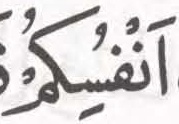 اَنْفُسِكُمْ